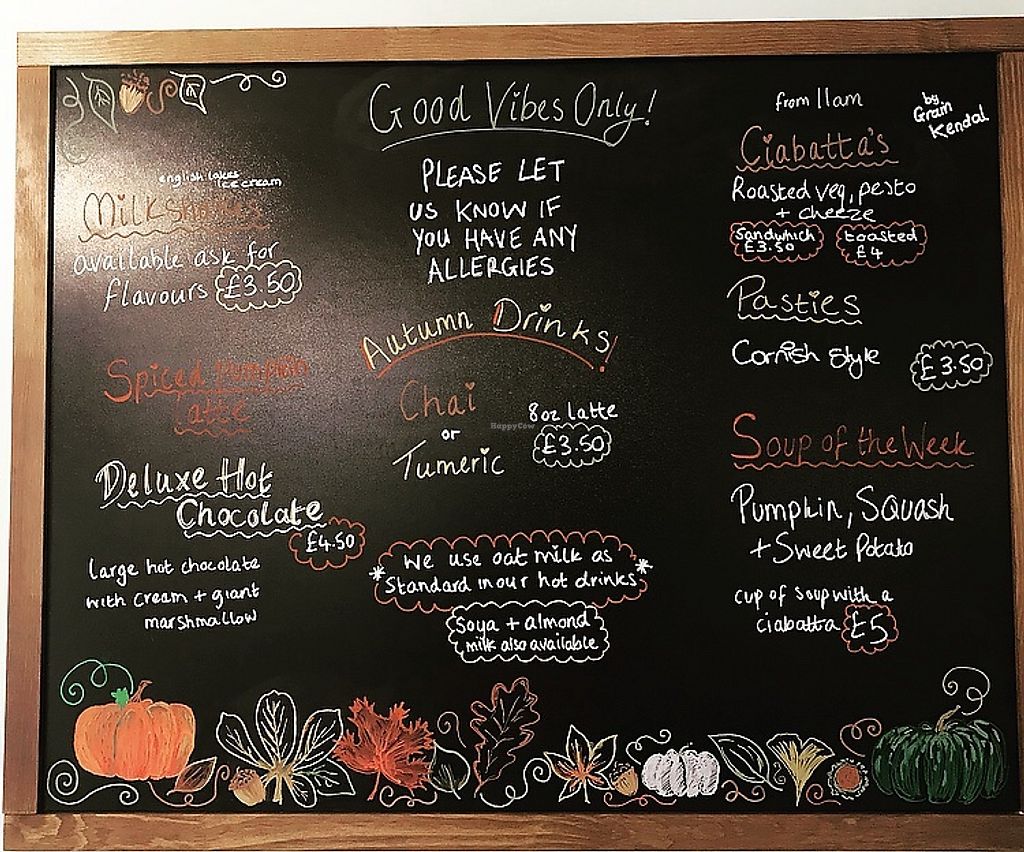 Good Vibes Only!
PLEASE LET
US KNOW IF
YOU HAVE ANY
ALLERGIES
english lakes
ice cream
Milkshakes
available ask for
flavours £3.50
Spiced Pumpkin
Latte
Deluxe Hot
Chocolate
£4.50
large hot chocolate
with cream + giant
marshmallow
Autumn Drinks!
Chai
or
Tumeric
8oz latte
£3.50
HappyCow
* We use oat milk as
Standard in our hot drinks *
Soya + almond
milk also available
from 11am
by
Grain
Kendal
Ciabatta's
Roasted veg, pesto
+ cheeze
Sandwhich
£3.50
toasted
£4
Pasties
Cornish style £3.50
Soup of the Week
Pumpkin, Squash
+ Sweet Potato
cup of soup with a
ciabatta £5